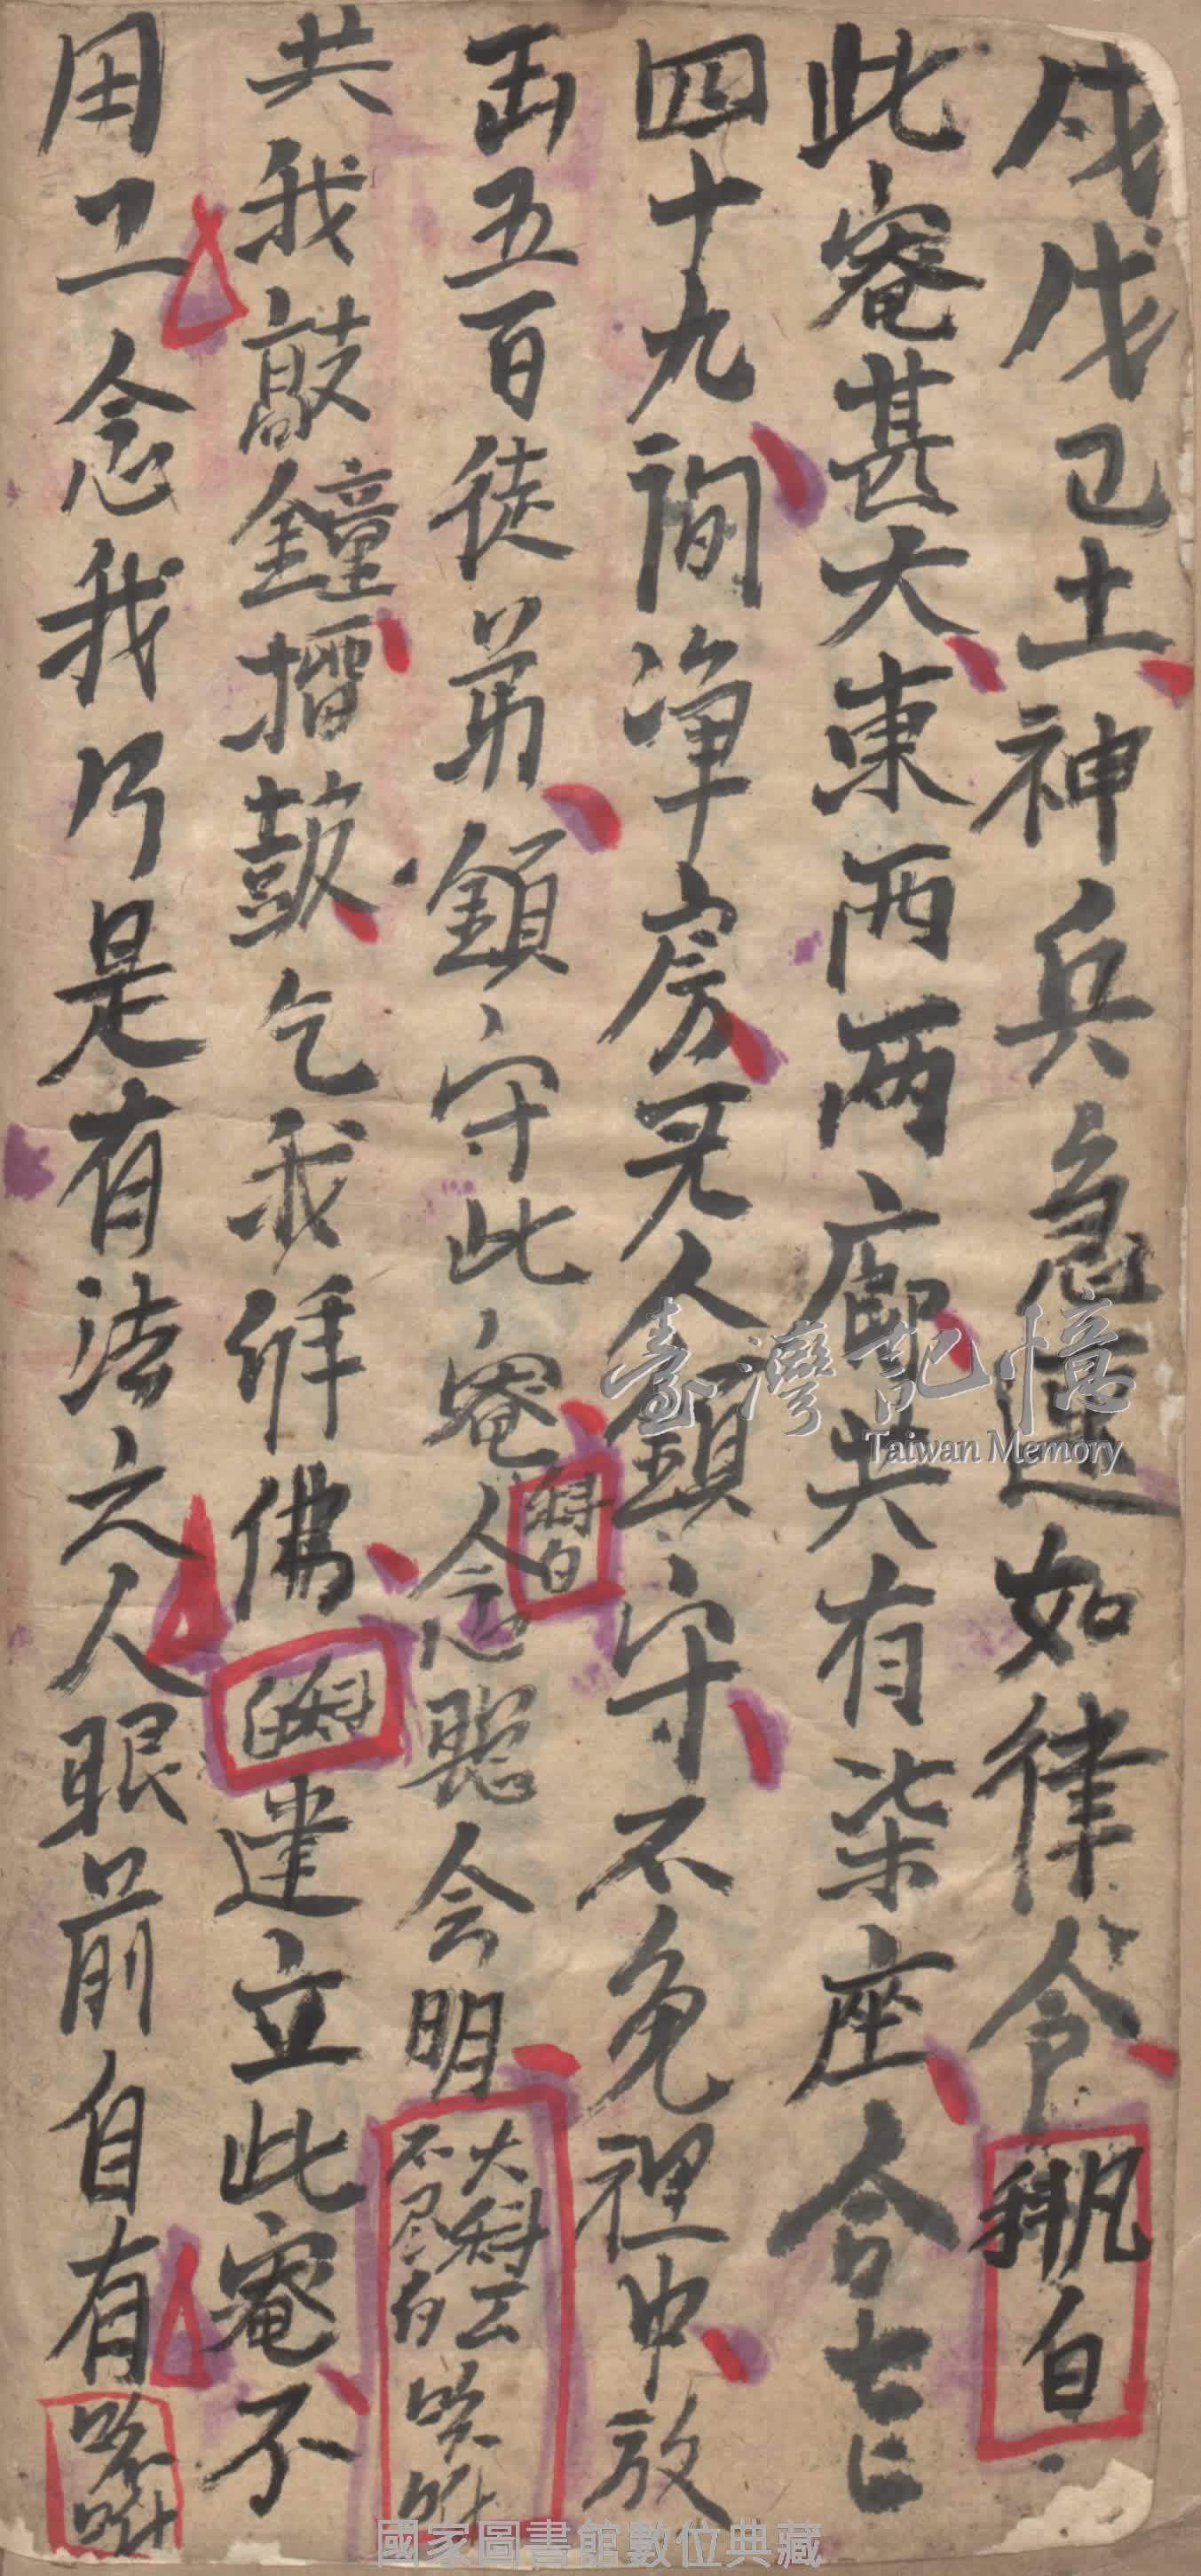 戊戊己土神兵急速如律令 白
此庵甚大東西兩廊共有柒座合七七
四十九間淨房无人鎮守不免裡中放
出五百徒弟鎮守此庵 白 念聰会明 大科云 不尽白 咲科
共我敲鐘擂鼓乞我拜佛 白 建立此庵不
用工念我乃是有法之人眼前自有 咲科
臺灣記憶
Taiwan Memory
國家圖書館數位典藏